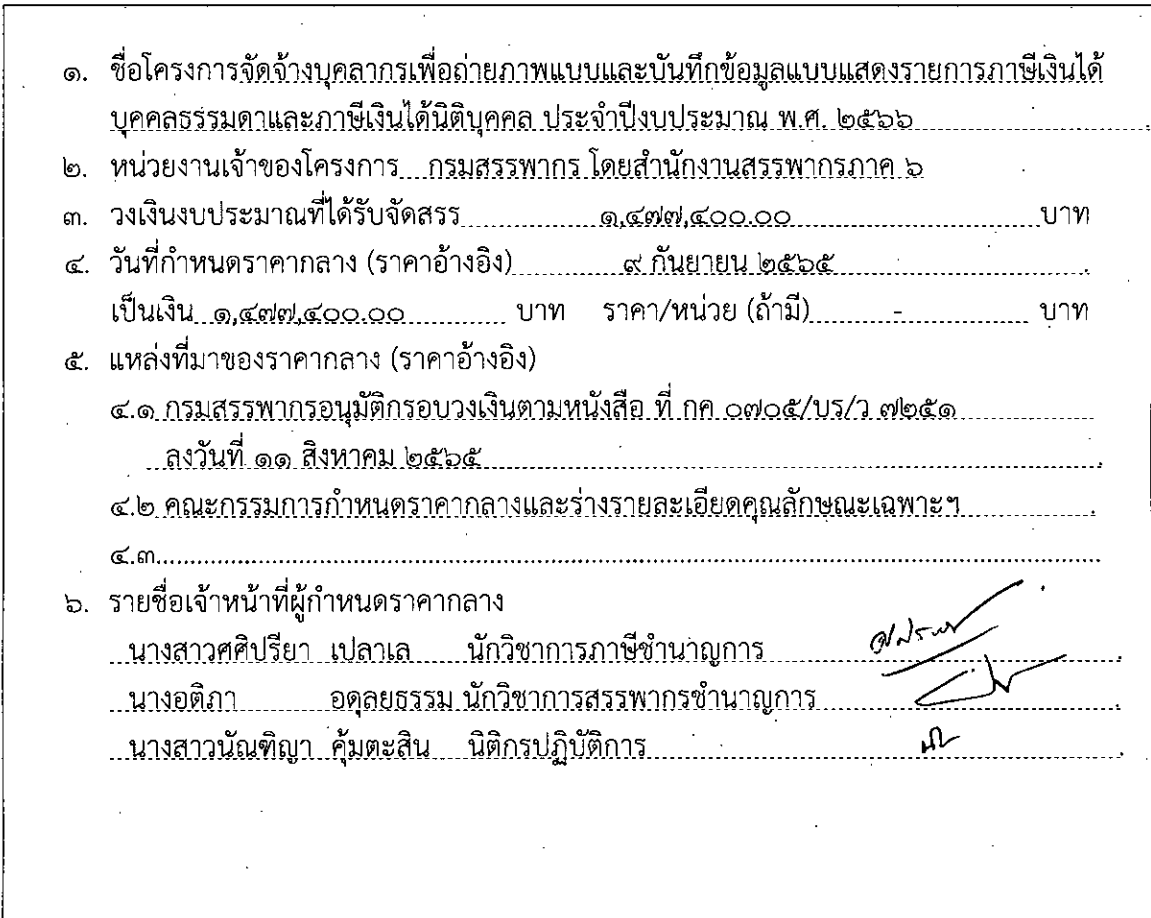 ๑. ชื่อโครงการจัดจ้างบุคลากรเพื่อถ่ายภาพแบบและบันทึกข้อมูลแบบแสดงรายการภาษีเงินได้
บุคคลธรรมดาและภาษีเงินได้นิติบุคคล ประจำปีงบประมาณ พ.ศ. ๒๕๖๖
๒. หน่วยงานเจ้าของโครงการ กรมสรรพากร โดยสำนักงานสรรพากรภาค ๖
๓. วงเงินงบประมาณที่ได้รับจัดสรร ๑,๔๗๗,๔๐๐.๐๐ บาท
๔. วันที่กำหนดราคากลาง (ราคาอ้างอิง) ๙ กันยายน ๒๕๖๕
เป็นเงิน ๑,๔๗๗,๔๐๐.๐๐ บาท ราคา/หน่วย (ถ้ามี) - บาท
๕. แหล่งที่มาของราคากลาง (ราคาอ้างอิง)
๔.๑ กรมสรรพากรอนุมัติกรอบวงเงินตามหนังสือ ที่ กค ๐๗๐๕/บร/ว ๗๒๕๑
ลงวันที่ ๑๑ สิงหาคม ๒๕๖๕
๔.๒ คณะกรรมการกำหนดราคากลางและร่างรายละเอียดคุณลักษณะเฉพาะฯ
๔.๓
๖. รายชื่อเจ้าหน้าที่ผู้กำหนดราคากลาง
นางสาวศศิปรียา เปลาเล นักวิชาการภาษีชำนาญการ
นางอติภา อดุลยธรรม นักวิชาการสรรพากรชำนาญการ
นางสาวนัณฑิญา คุ้มตะสิน นิติกรปฏิบัติการ